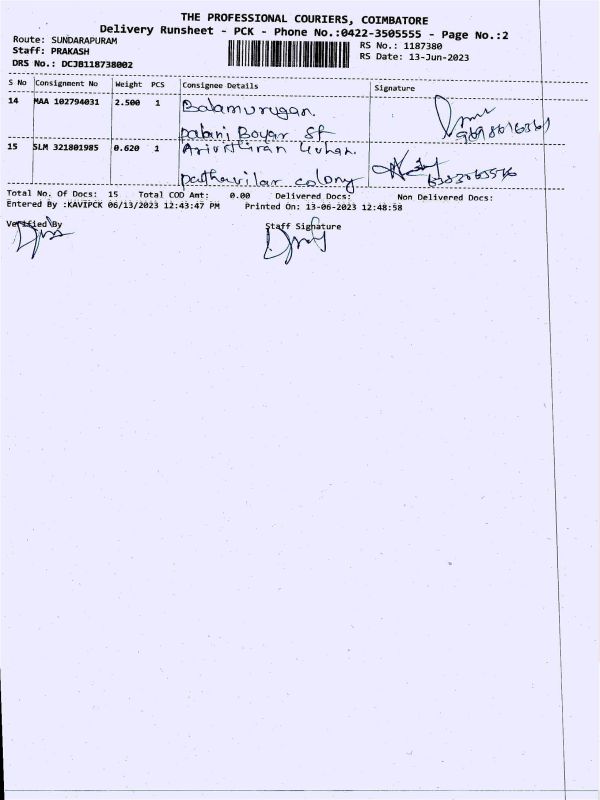 THE PROFESSIONAL COURIERS, COIMBATORE
Delivery Runsheet - PCK - Phone No.:0422-3505555 - Page No.:2
Route: SUNDARAPURAM
RS No.: 1187380
Staff: PRAKASH
RS Date: 13-Jun-2023
DRS No.: DCJB118738002
S No Consignment No Weight PCS Consignee Details Signature
14 MAA 102794031 2.500 1 Balamurugan.
palani Boyar St
15 SLM 321801985 0.620 1
colony
Total No. Of Docs: 15 Total COD Amt: 0.00 Delivered Docs: Non Delivered Docs:
Entered By :KAVIPCK 06/13/2023 12:43:47 PM Printed On: 13-06-2023 12:48:58
Verified By Staff Signature